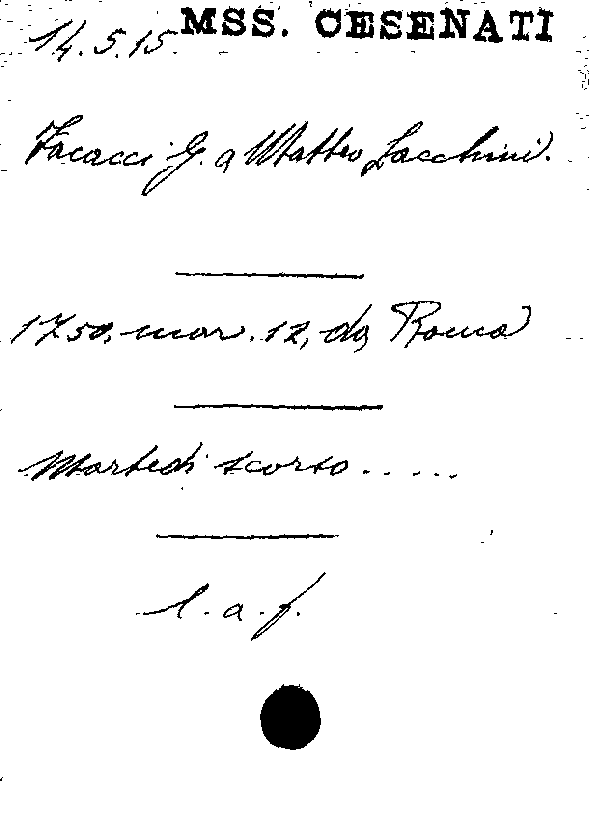 14.5.15. MSS. CESENATI
Facacci G. a Matteo Lacchini.
1750, mar. 12, da Roma
Martedi scorso.....
l. a. f.